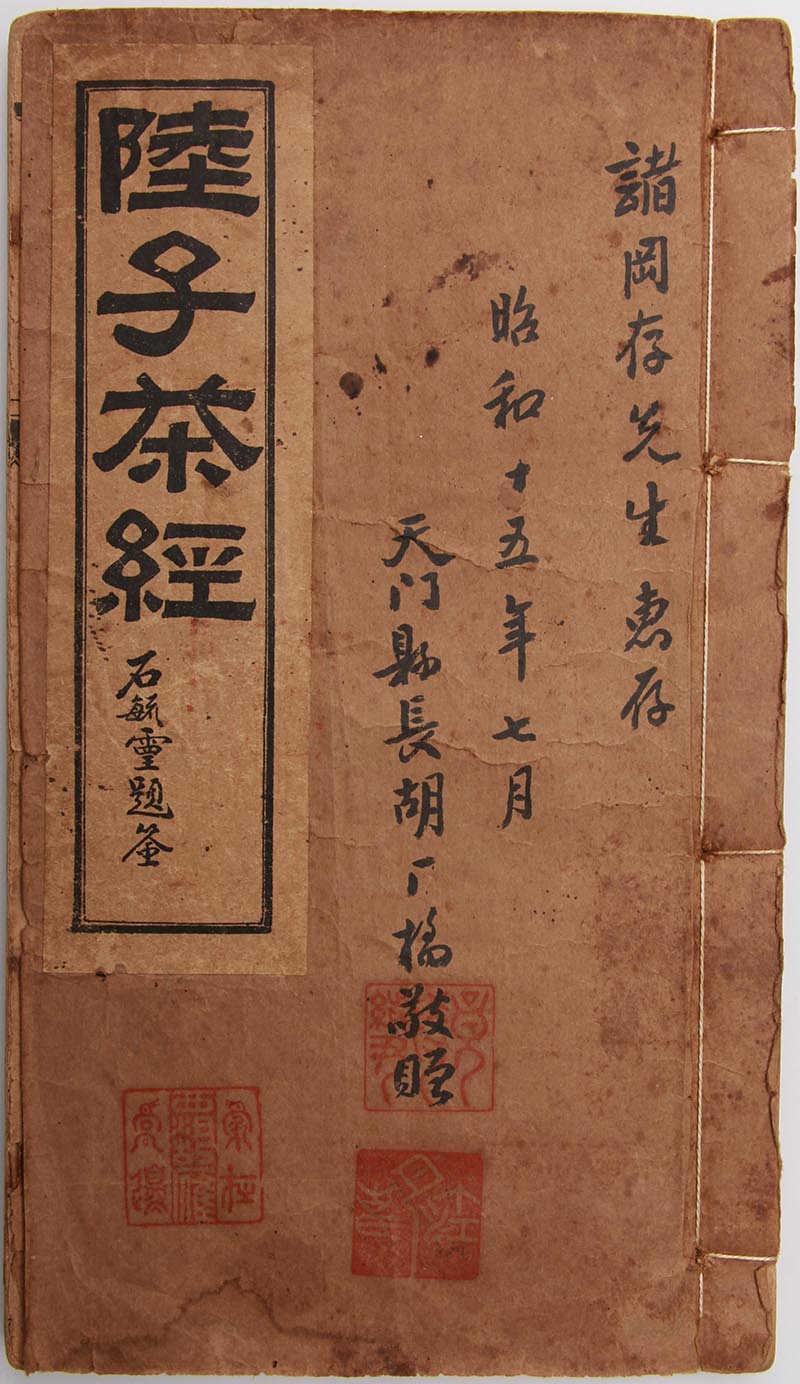 諸岡存先生惠存
昭和十五年七月
天门縣長胡厂橋敬贈
陸子茶經
石毓靈題签